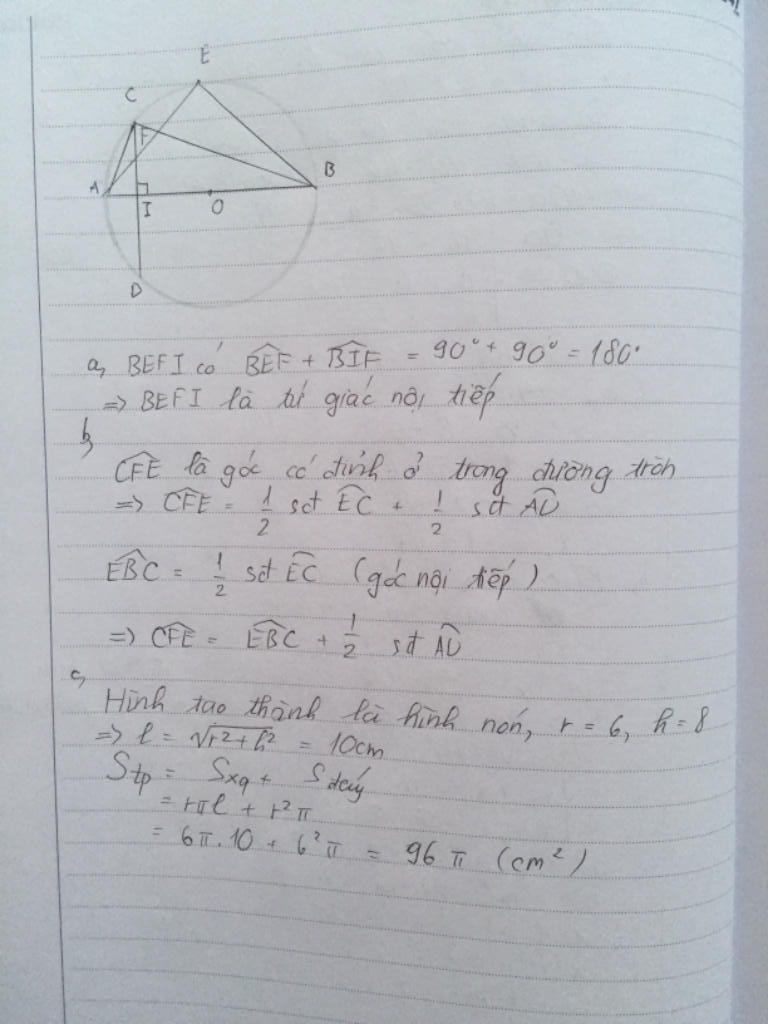 E
C
F
B
A
I
O
D
a, BEFI có \widehat{BEF} + \widehat{BIF} = 90° + 90° = 180°
=> BEFI là tứ giác nội tiếp
b,
\widehat{CFE} là góc có đỉnh ở trong đường tròn
=> \widehat{CFE} = 1/2 sđ \widehat{EC} + 1/2 sđ \widehat{AD}
\widehat{EBC} = 1/2 sđ \widehat{EC} (góc nội tiếp)
=> \widehat{CFE} = \widehat{EBC} + 1/2 sđ \widehat{AD}
c,
Hình tạo thành là hình nón, r = 6, h = 8
=> l = √(r² + h²) = 10cm
Stp = Sxq + Sđáy
= rπl + r²π
= 6π.10 + 6²π = 96π (cm²)